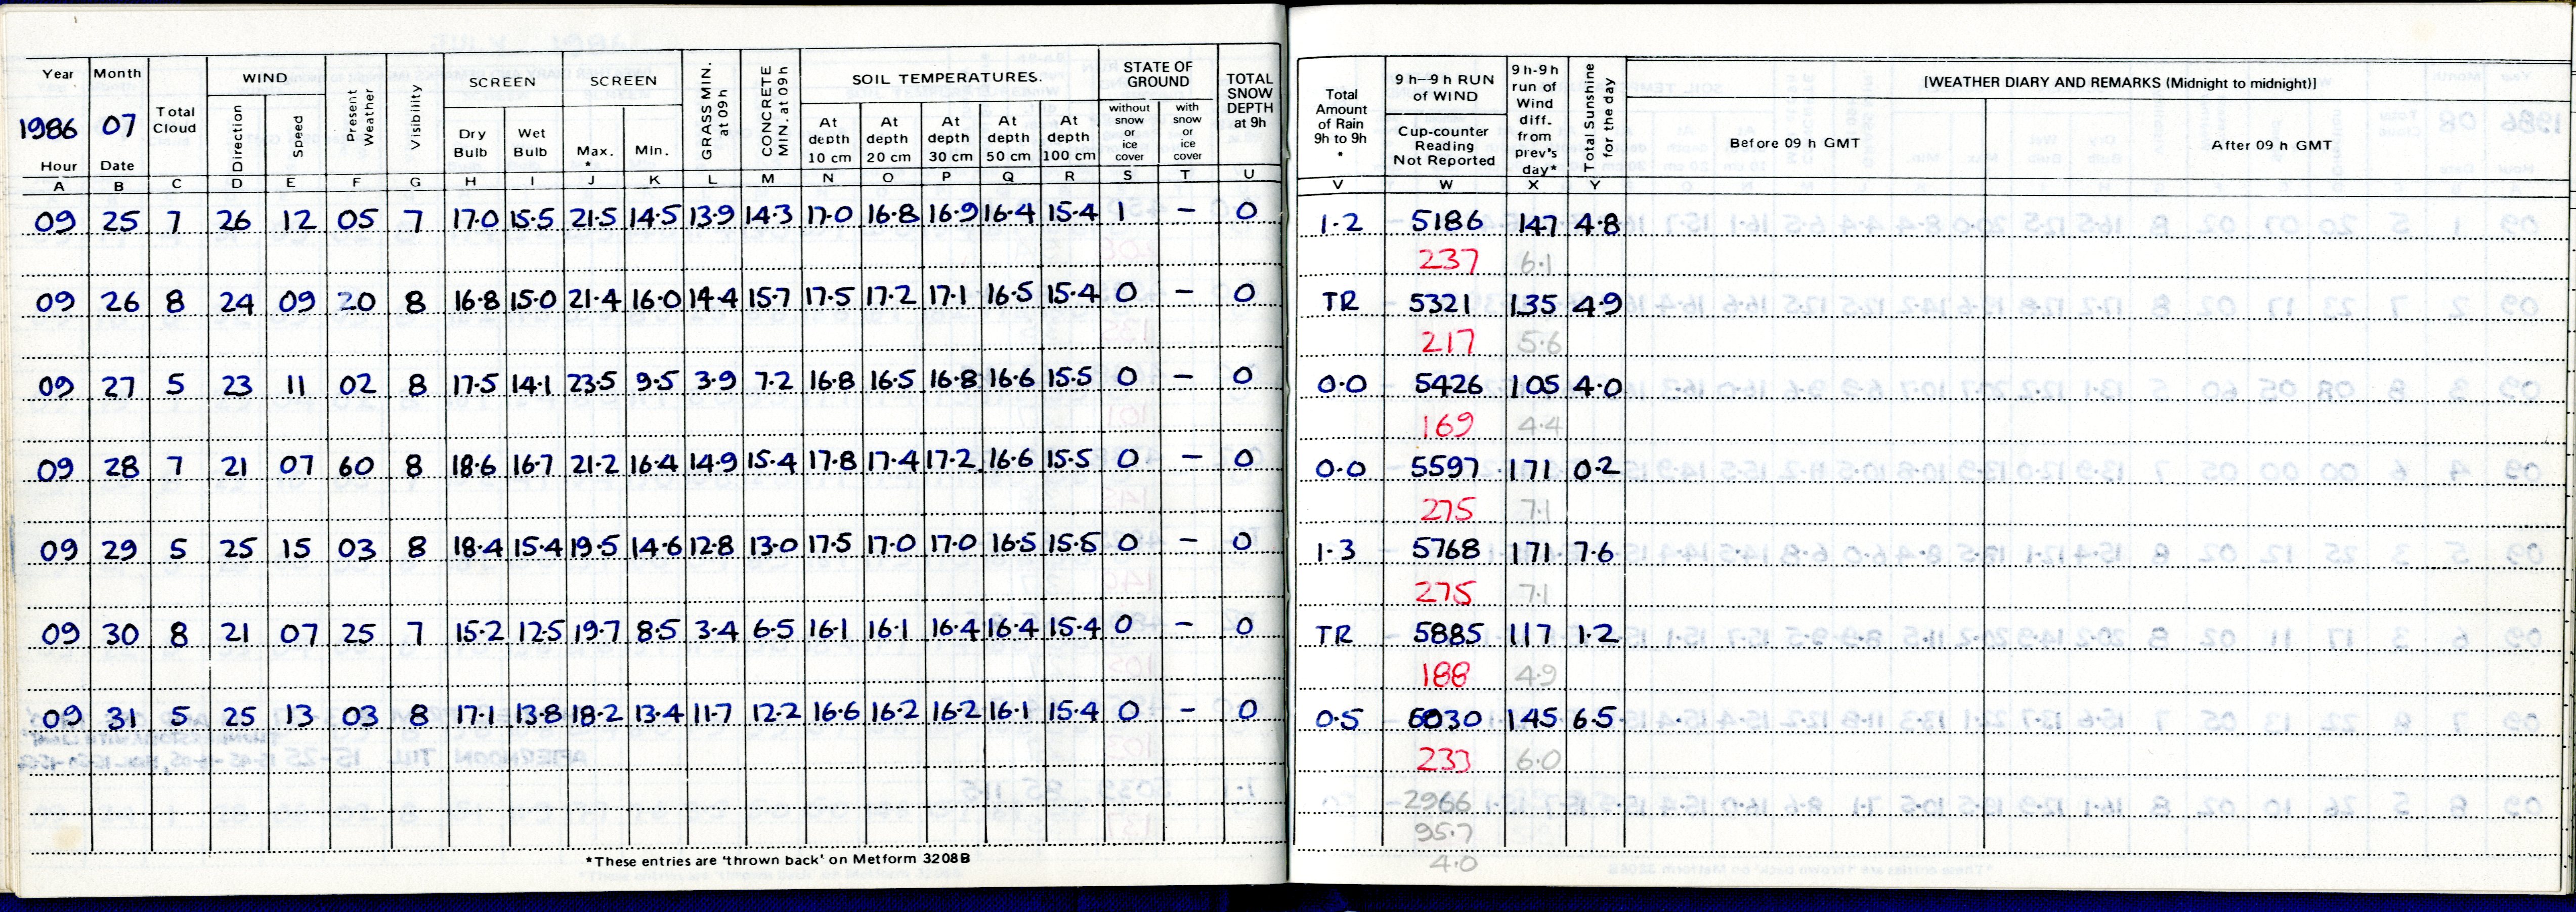 Year Month Total Cloud WIND Direction Speed Present Weather Visibility SCREEN Dry Bulb Wet Bulb SCREEN Max. * Min. GRASS MIN. at 09 h CONCRETE MIN. at 09 h SOIL TEMPERATURES. At depth 10 cm At depth 20 cm At depth 30 cm At depth 50 cm At depth 100 cm STATE OF GROUND without snow or ice cover with snow or ice cover TOTAL SNOW DEPTH at 9h Total Amount of Rain 9h to 9h * 9 h-9 h RUN of WIND Cup-counter Reading Not Reported * 9 h-9h run of Wind diff. from prev's day* Total Sunshine for the day [WEATHER DIARY AND REMARKS (Midnight to midnight)] Before 09 h GMT After 09 h GMT
1986 07
Hour Date
A B C D E F G H I J K L M N O P Q R S T U V W X Y
09 25 7 26 12 05 7 17.0 15.5 21.5 14.5 13.9 14.3 17.0 16.8 16.9 16.4 15.4 1 – 0 1.2 5186 147 4.8
237 6.1
09 26 8 24 09 20 8 16.8 15.0 21.4 16.0 14.4 15.7 17.5 17.2 17.1 16.5 15.4 0 – 0 TR 5321 135 4.9
217 5.6
09 27 5 23 11 02 8 17.5 14.1 23.5 9.5 3.9 7.2 16.8 16.5 16.8 16.6 15.5 0 – 0 0.0 5426 105 4.0
169 4.4
09 28 7 21 07 60 8 18.6 16.7 21.2 16.4 14.9 15.4 17.8 17.4 17.2 16.6 15.5 0 – 0 0.0 5597 171 0.2
275 7.1
09 29 5 25 15 03 8 18.4 15.4 19.5 14.6 12.8 13.0 17.5 17.0 17.0 16.5 15.5 0 – 0 1.3 5768 171 7.6
275 7.1
09 30 8 21 07 25 7 15.2 12.5 19.7 8.5 3.4 6.5 16.1 16.1 16.4 16.4 15.4 0 – 0 TR 5885 117 1.2
188 4.9
09 31 5 25 13 03 8 17.1 13.8 18.2 13.4 11.7 12.2 16.6 16.2 16.2 16.1 15.4 0 – 0 0.5 6030 145 6.5
233 6.0
2966
95.7
4.0
*These entries are 'thrown back' on Metform 3208B